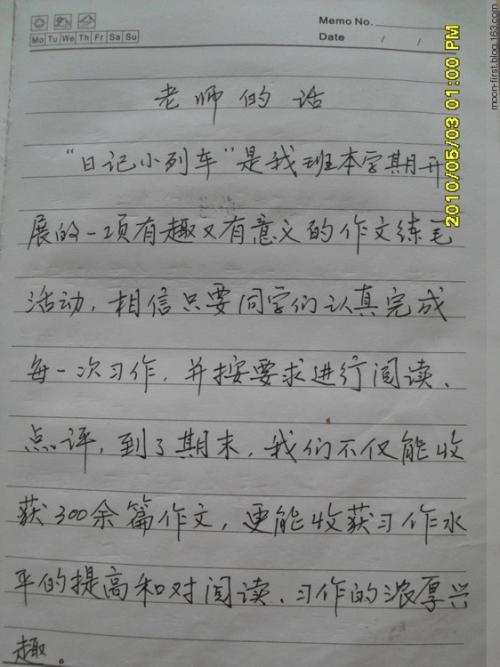 Memo No.
Mo Tu We Th Fr Sa Su
Date / /
老师的话
“日记小列车”是我班本学期开
展的一项有趣又有意义的作文练笔
活动，相信只要同学们认真完成
每一次习作，并按要求进行阅读、
点评，到了期末，我们不仅能收
获300余篇作文，更能收获习作水
平的提高和对阅读、习作的浓厚兴
趣。
2010/05/03 01:00 PM
moon-first.blog.163.com